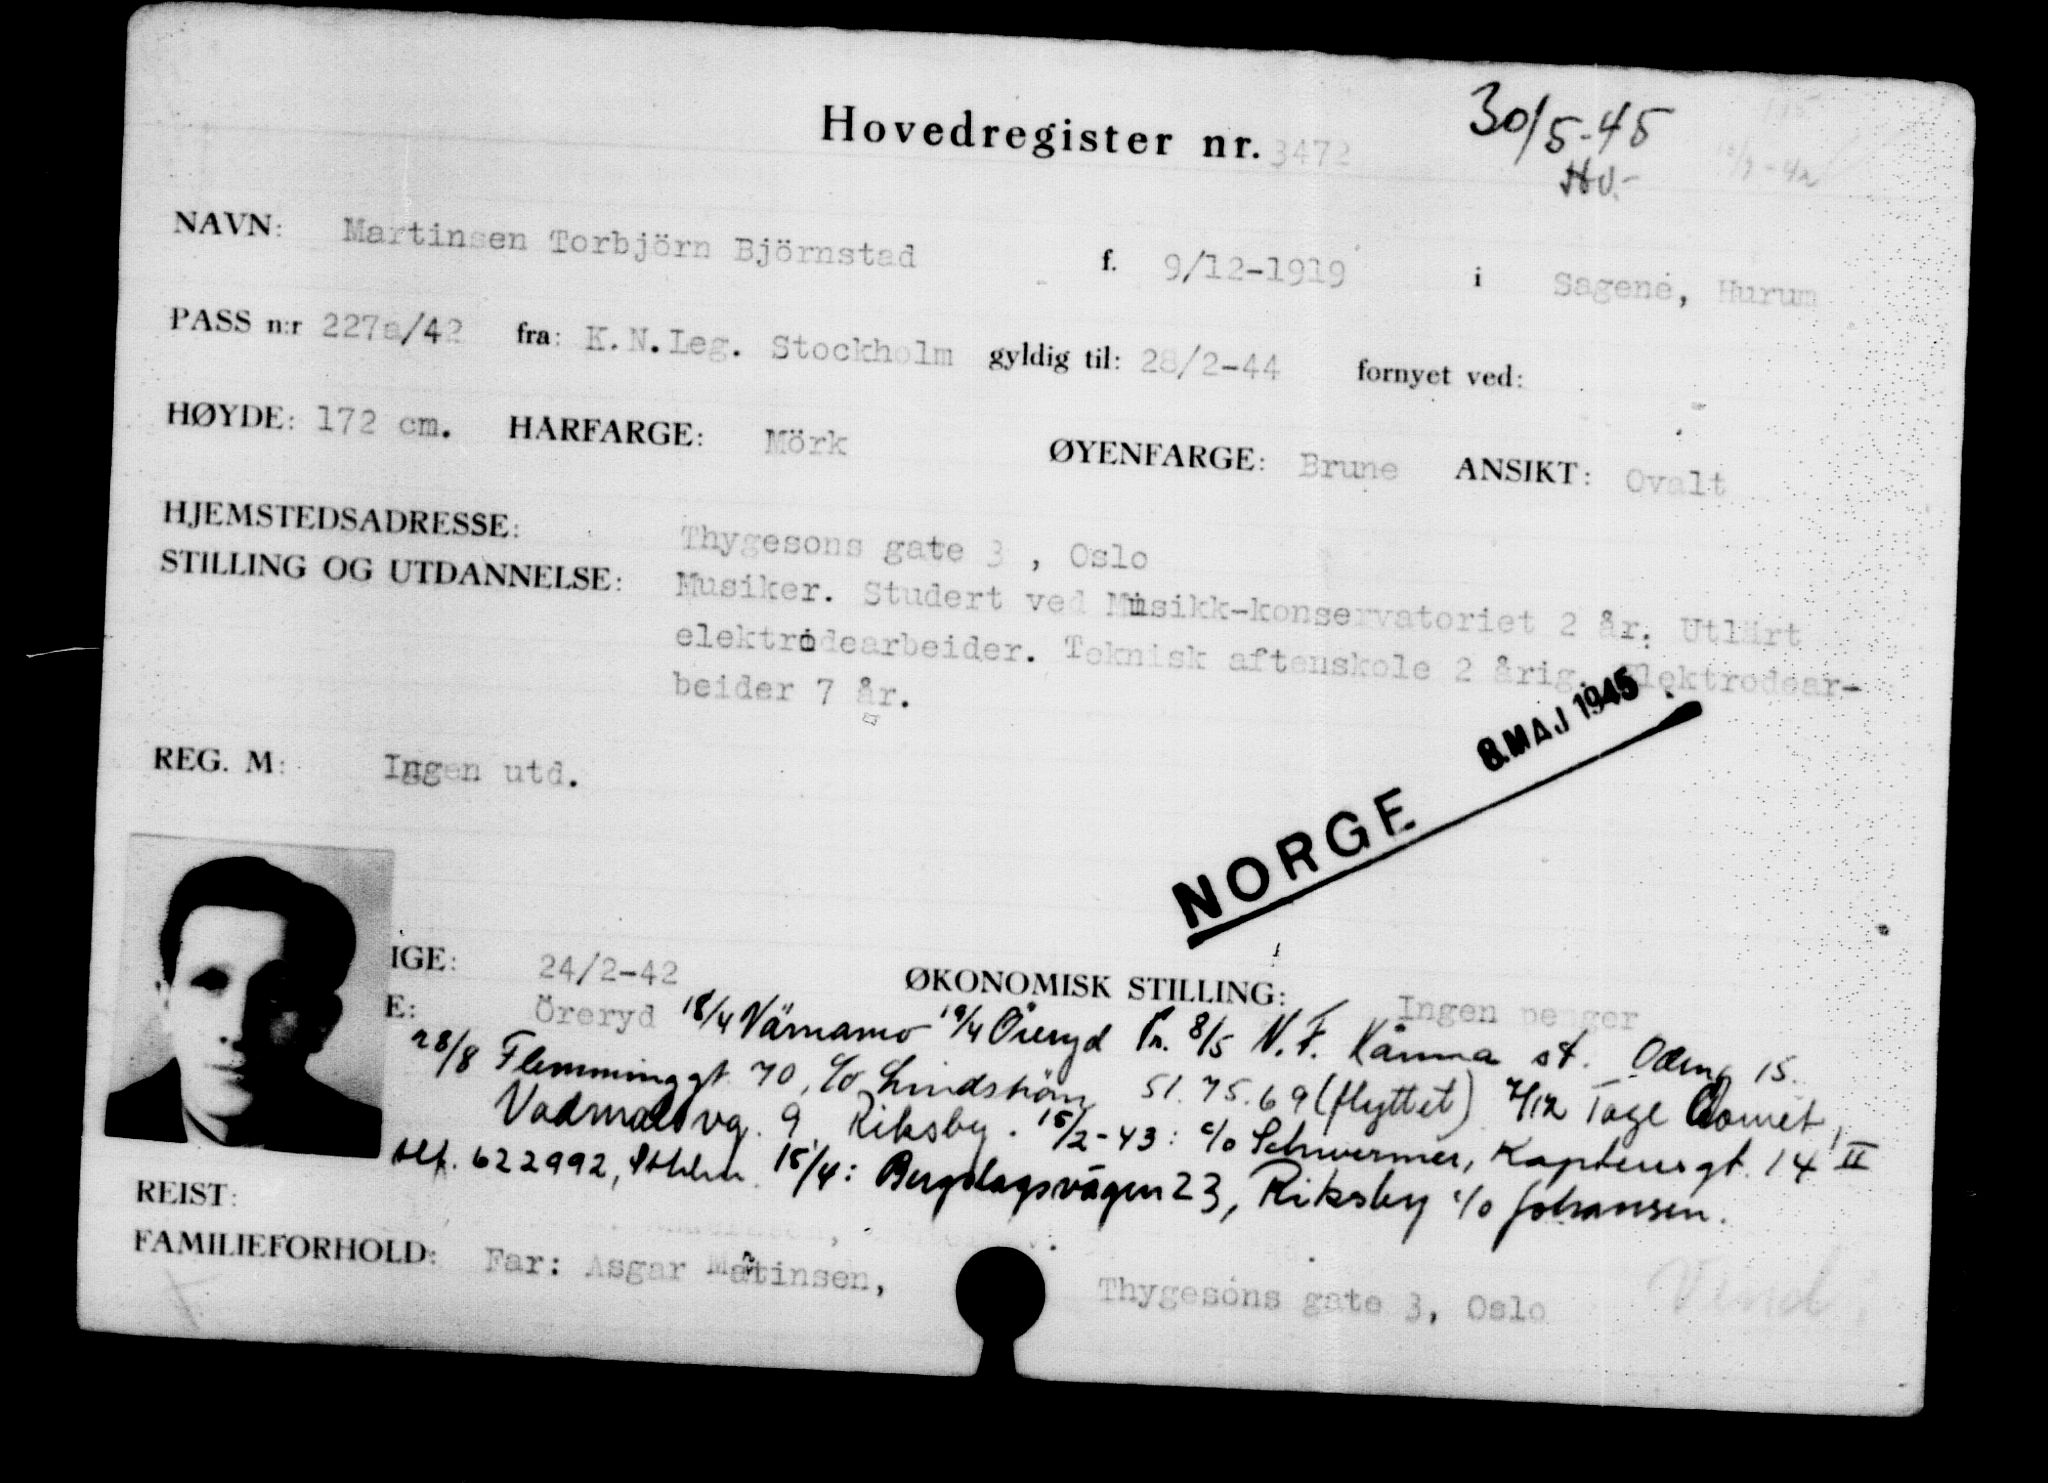 Hovedregister nr. 3472
30/5-45
NAVN: Martinsen Torbjörn Björnstad f. 9/12-1919 i Sagene, Hurum
PASS n:r 227a/42 fra: K.N.Leg. Stockholm gyldig til: 28/2-44 fornyet ved:
HØYDE: 172 cm. HARFARGE: Mörk ØYENFARGE: Brune ANSIKT: Ovalt
HJEMSTEDSADRESSE: Thygesons gate 3 , Oslo
STILLING OG UTDANNELSE: Musiker. Studert ved Musikk-konservatoriet 2 år. Utlärt
elektrodearbeider. Teknisk aftenskole 2 årig. Elektrodear-
beider 7 år.
8. MAJ 1945
REG. M: Ingen utd.
NORGE
IGE: 24/2-42 ØKONOMISK STILLING: Ingen penger
E: Öreryd 18/4 Värnamo 19/4 Öreryd Pr. 8/5 N.F. Kånna st. 15.
28/8 Flemminggt. 70, c/o Lindström 51.75.69 (flyttet) 7/12 Tage
Vadmalsvg. 9 Riksby. 15/2-43: c/o Schwermer, Kaptensgt. 14 II
tlf. 622992, Sthlm 15/4: Bergslagsvägen 23, Riksby c/o Johansen.
REIST:
FAMILIEFORHOLD: Far: Asgar Martinsen, Thygesons gate 3, Oslo
Vend